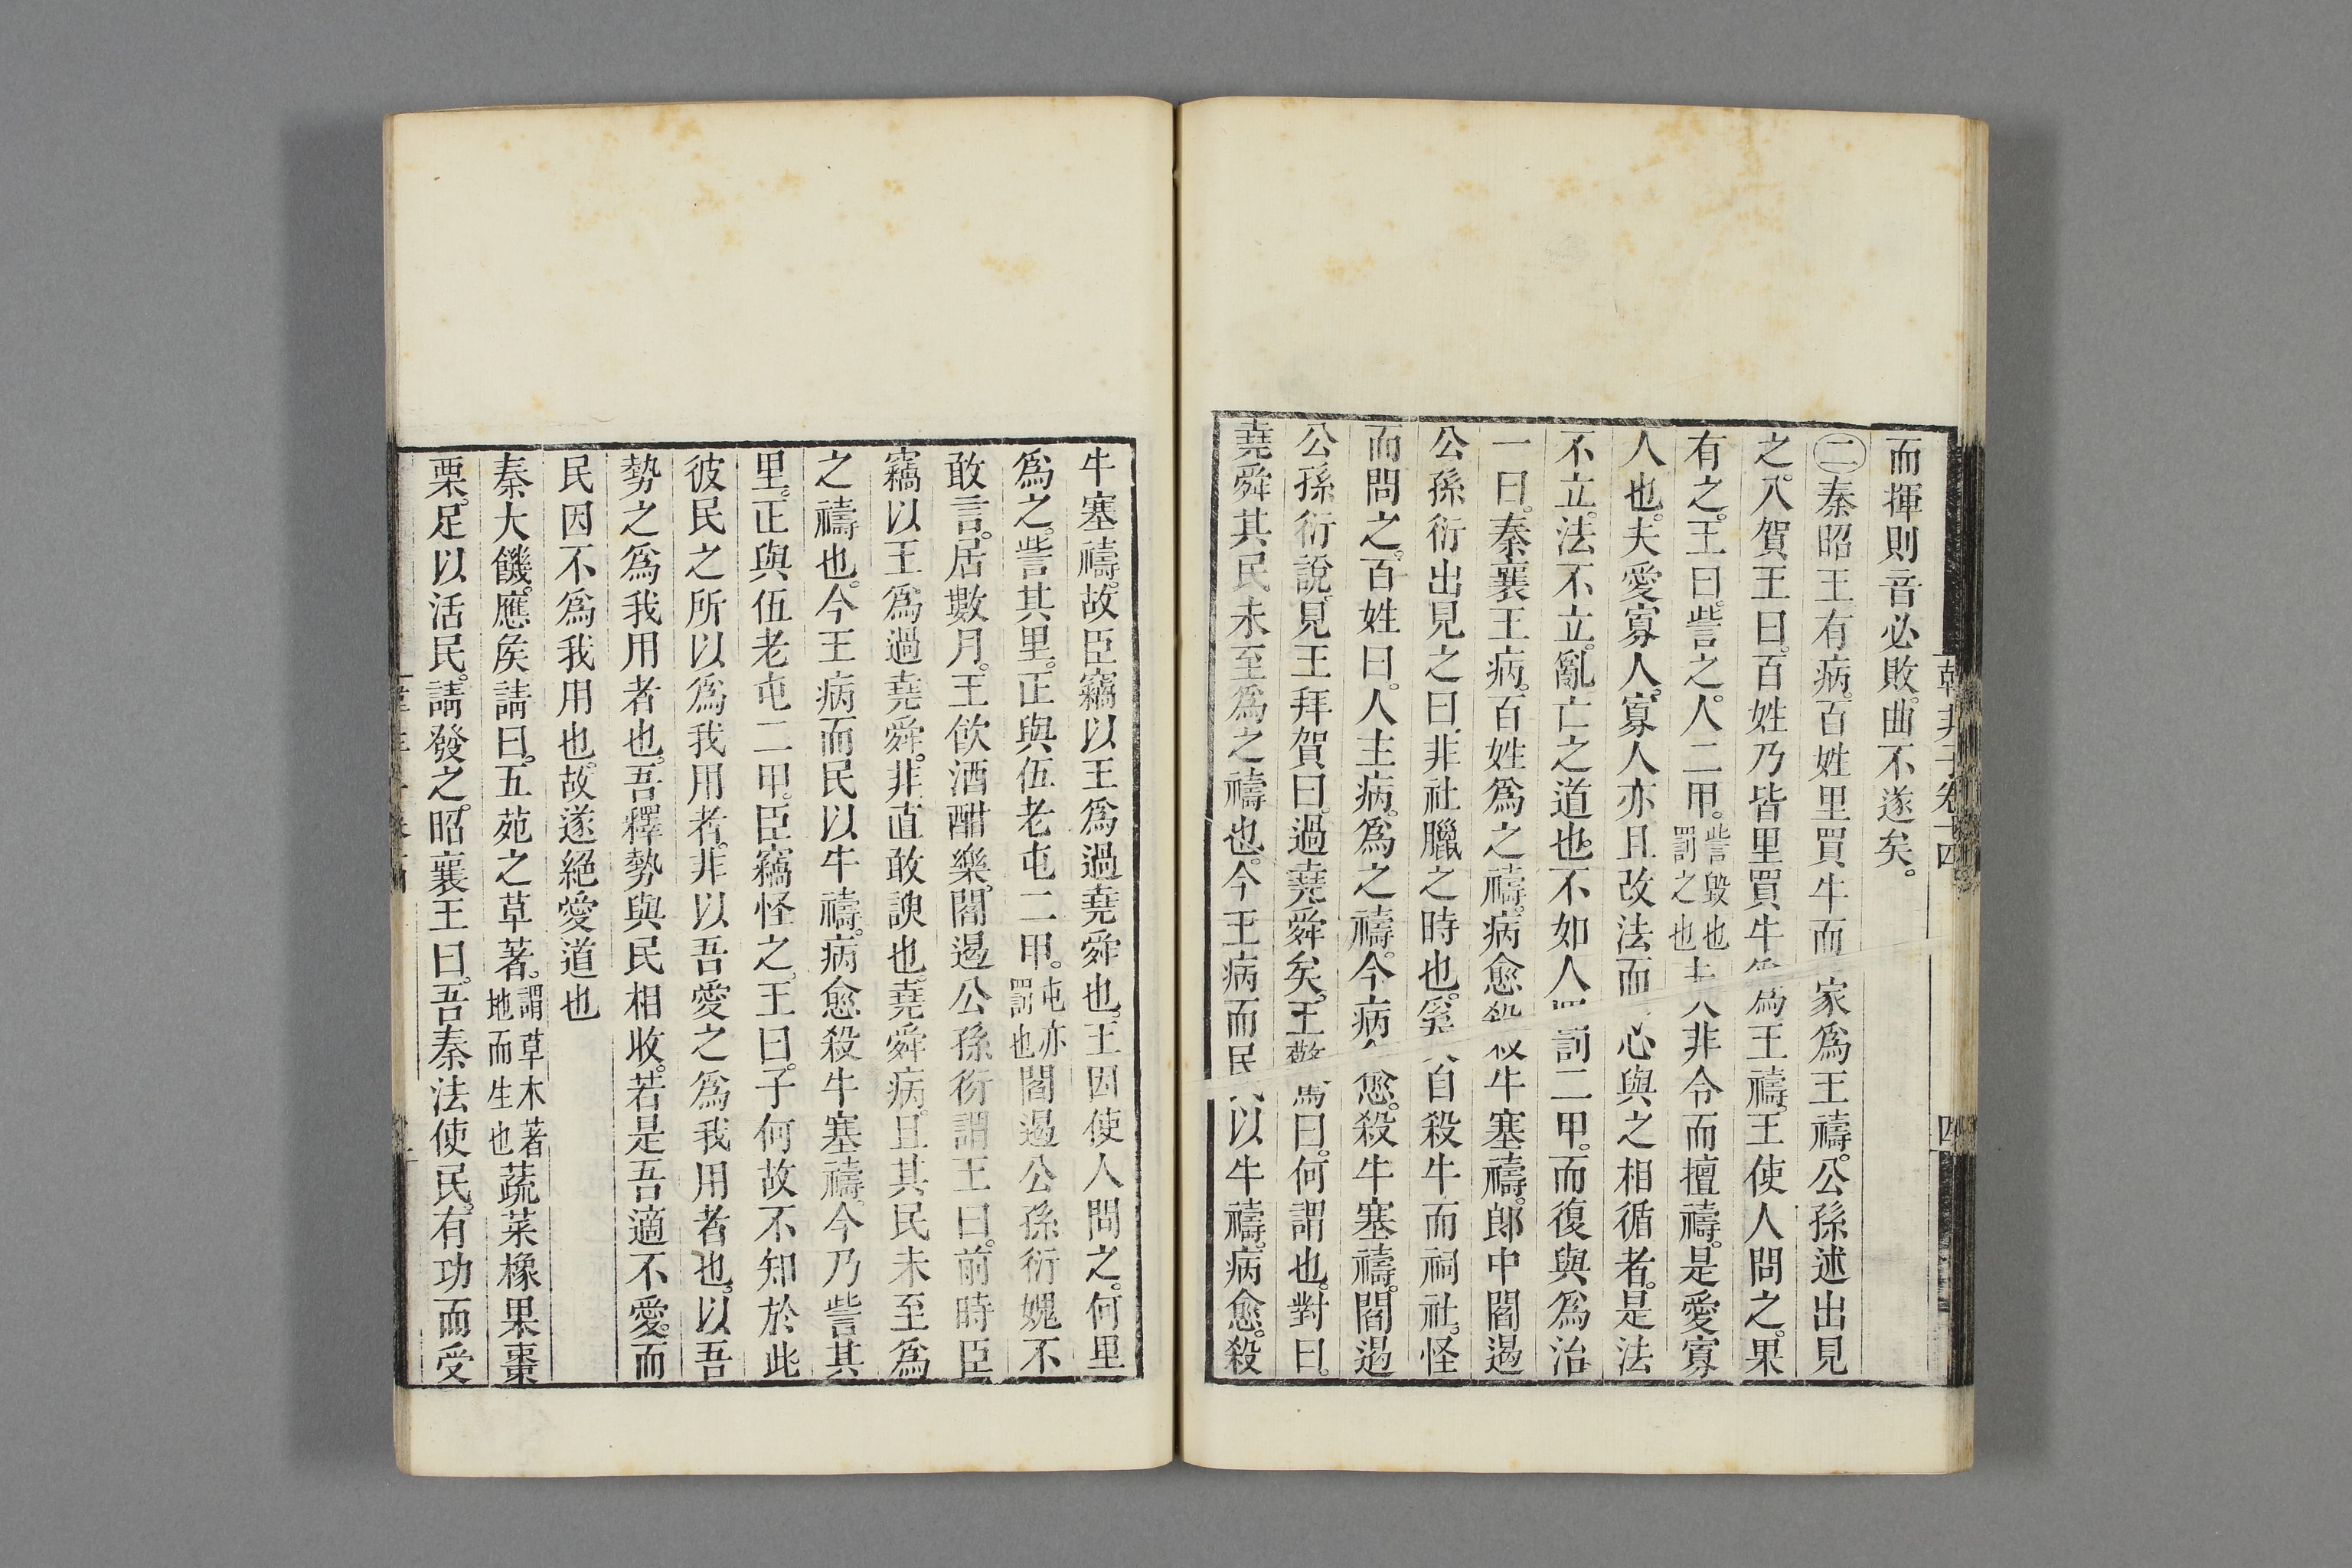 而揮則音必敗。曲不遂矣。
㊁秦昭王有病。百姓里買牛而家爲王禱。公孫述出見
之。入賀王曰。百姓乃皆里買牛爲王禱。王使人問之。果
有之。王曰。訾之。人二甲。訾毀也罰之也夫非令而擅禱。是愛寡
人也。夫愛寡人。寡人亦且改法而心與之相循者。是法
不立。法不立。亂亡之道也。不如人罰二甲。而復與爲治
一曰。秦襄王病。百姓爲之禱。病愈殺牛塞禱。郎中閻遏
公孫衍出見之曰。非社臘之時也。奚自殺牛而祠社。怪
而問之。百姓曰。人主病。爲之禱。今病愈。殺牛塞禱。閻遏
公孫衍說。見王拜賀曰。過堯舜矣。王驚曰。何謂也。對曰。
堯舜其民未至爲之禱也。今王病而民以牛禱。病愈。殺
韓非子卷十四
四
牛塞禱。故臣竊以王爲過堯舜也。王因使人問之。何里
爲之。訾其里。正與伍老屯二甲。屯亦罰也閻遏公孫衍媿不
敢言。居數月。王飮酒酣樂。閻遏公孫衍謂王曰。前時臣
竊以王爲過堯舜。非直敢諛也。堯舜病。且其民未至爲
之禱也。今王病而民以牛禱。病愈殺牛塞禱。今乃訾其
里。正與伍老屯二甲。臣竊怪之。王曰。子何故不知於此
彼民之所以爲我用者。非以吾愛之爲我用者也。以吾
勢之爲我用者也。吾釋勢與民相收。若是吾適不愛。而
民因不爲我用也。故遂絕愛道也
秦大饑。應矦請曰。五苑之草著。謂草木著地而生也蔬菜橡果棗
栗。足以活民。請發之。昭襄王曰。吾秦法使民。有功而受